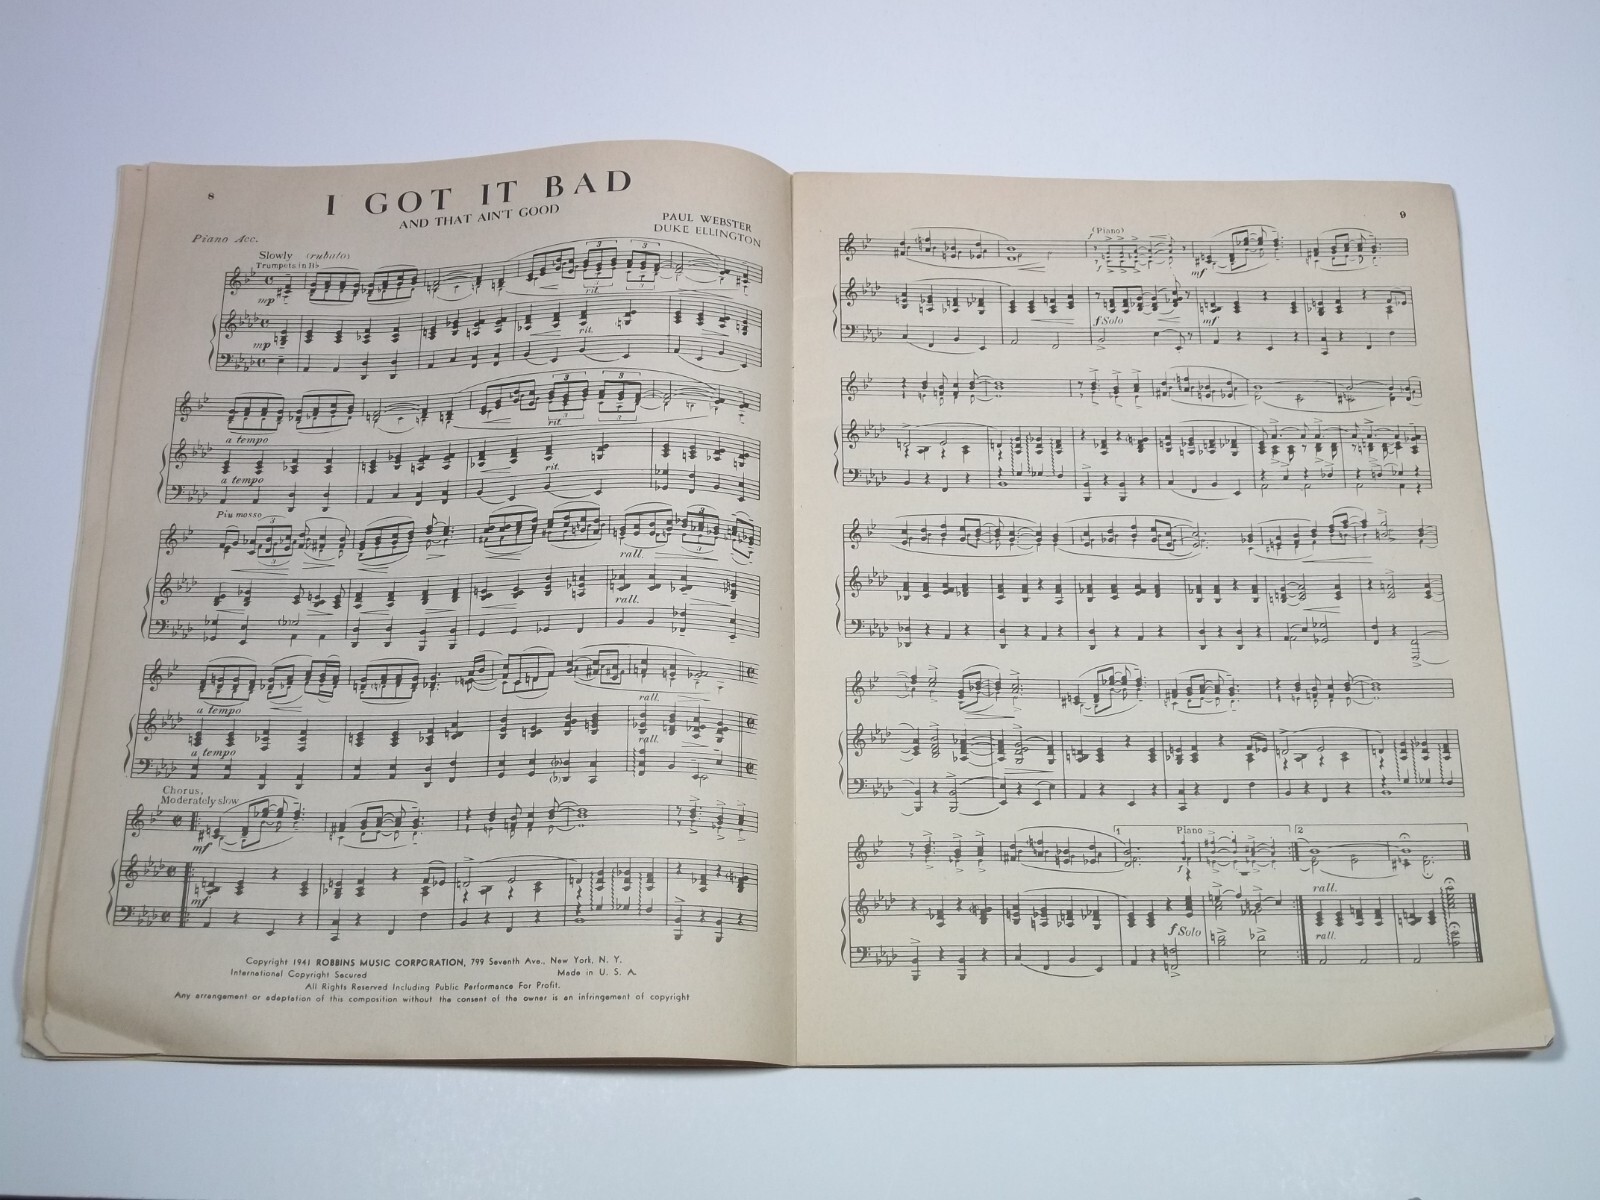 8
I GOT IT BAD
AND THAT AIN'T GOOD
PAUL WEBSTER
DUKE ELLINGTON
Piano Acc.
Slowly (rubato)
Trumpets in B♭
mp
3 3
rit.
3 3
mp
rit.
3 3
rit.
3 3
a tempo
rit.
a tempo
Piu mosso
3
rall.
3
rall.
a tempo
rall.
a tempo
rall.
Chorus,
Moderately slow
mf
mf
Copyright 1941 ROBBINS MUSIC CORPORATION, 799 Seventh Ave., New York, N. Y.
International Copyright Secured Made in U. S. A.
All Rights Reserved Including Public Performance For Profit.
Any arrangement or adaptation of this composition without the consent of the owner is an infringement of copyright
9
(Piano)
f
f
mf
f Solo
mf
1 Piano 2
f
rall.
f Solo
rall.